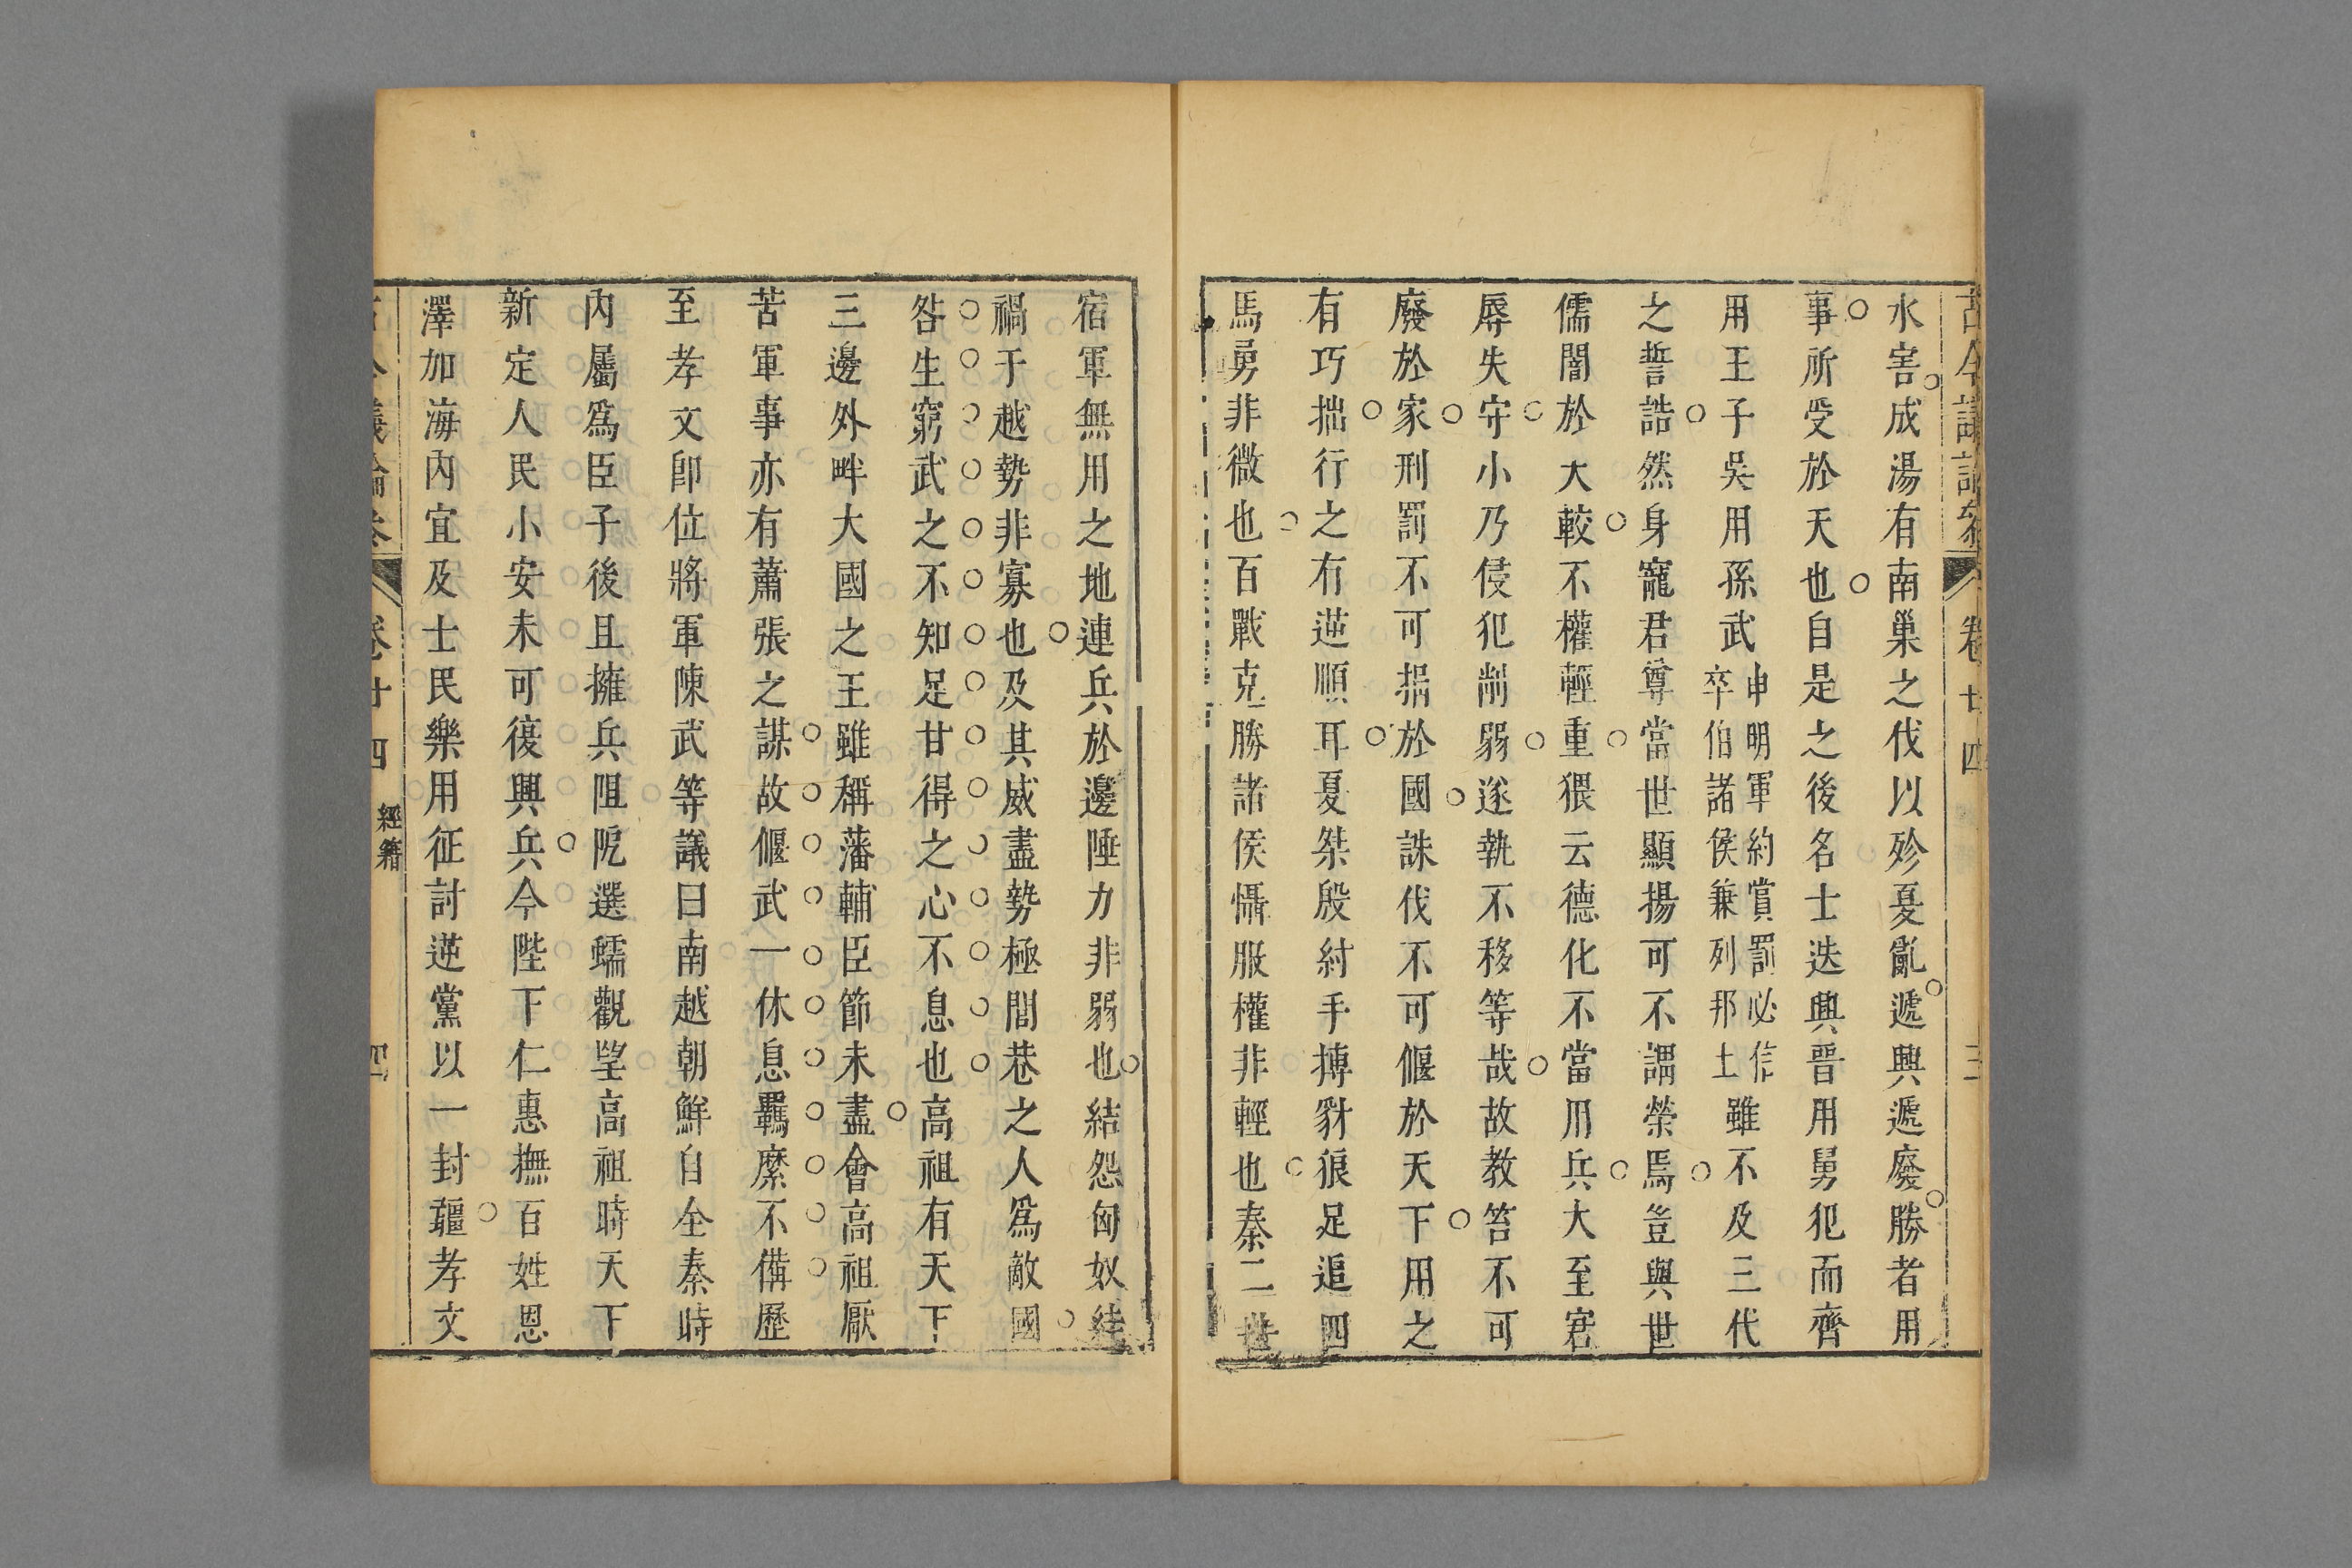 古今議論參 卷廿四 三
水害成湯有南巢之伐以殄夏亂遞興遞廢勝者用
事所受於天也自是之後名士迭興晉用舅犯而齊
用王子吳用孫武申明軍約賞罰必信卒伯諸侯兼列邦土雖不及三代
之誓誥然身寵君尊當世顯揚可不謂榮焉豈與世
儒闇於大較不權輕重猥云德化不當用兵大至窘
辱失守小乃侵犯削弱遂執不移等哉故教笞不可
廢於家刑罰不可捐於國誅伐不可偃於天下用之
有巧拙行之有逆順耳夏桀殷紂手搏豺狼足追四
馬勇非微也百戰克勝諸侯懾服權非輕也秦二世
宿軍無用之地連兵於邊陲力非弱也結怨匈奴絓
禍于越勢非寡也及其威盡勢極閭巷之人爲敵國
咎生窮武之不知足甘得之心不息也高祖有天下
三邊外畔大國之王雖稱藩輔臣節未盡會高祖厭
苦軍事亦有蕭張之謀故偃武一休息羈縻不備歷
至孝文卽位將軍陳武等議曰南越朝鮮自全秦時
內屬爲臣子後且擁兵阻阨選蠕觀望高祖時天下
新定人民小安未可復興兵今陛下仁惠撫百姓恩
澤加海內宜及士民樂用征討逆黨以一封疆孝文
古今議論參 卷廿四 經籍 四